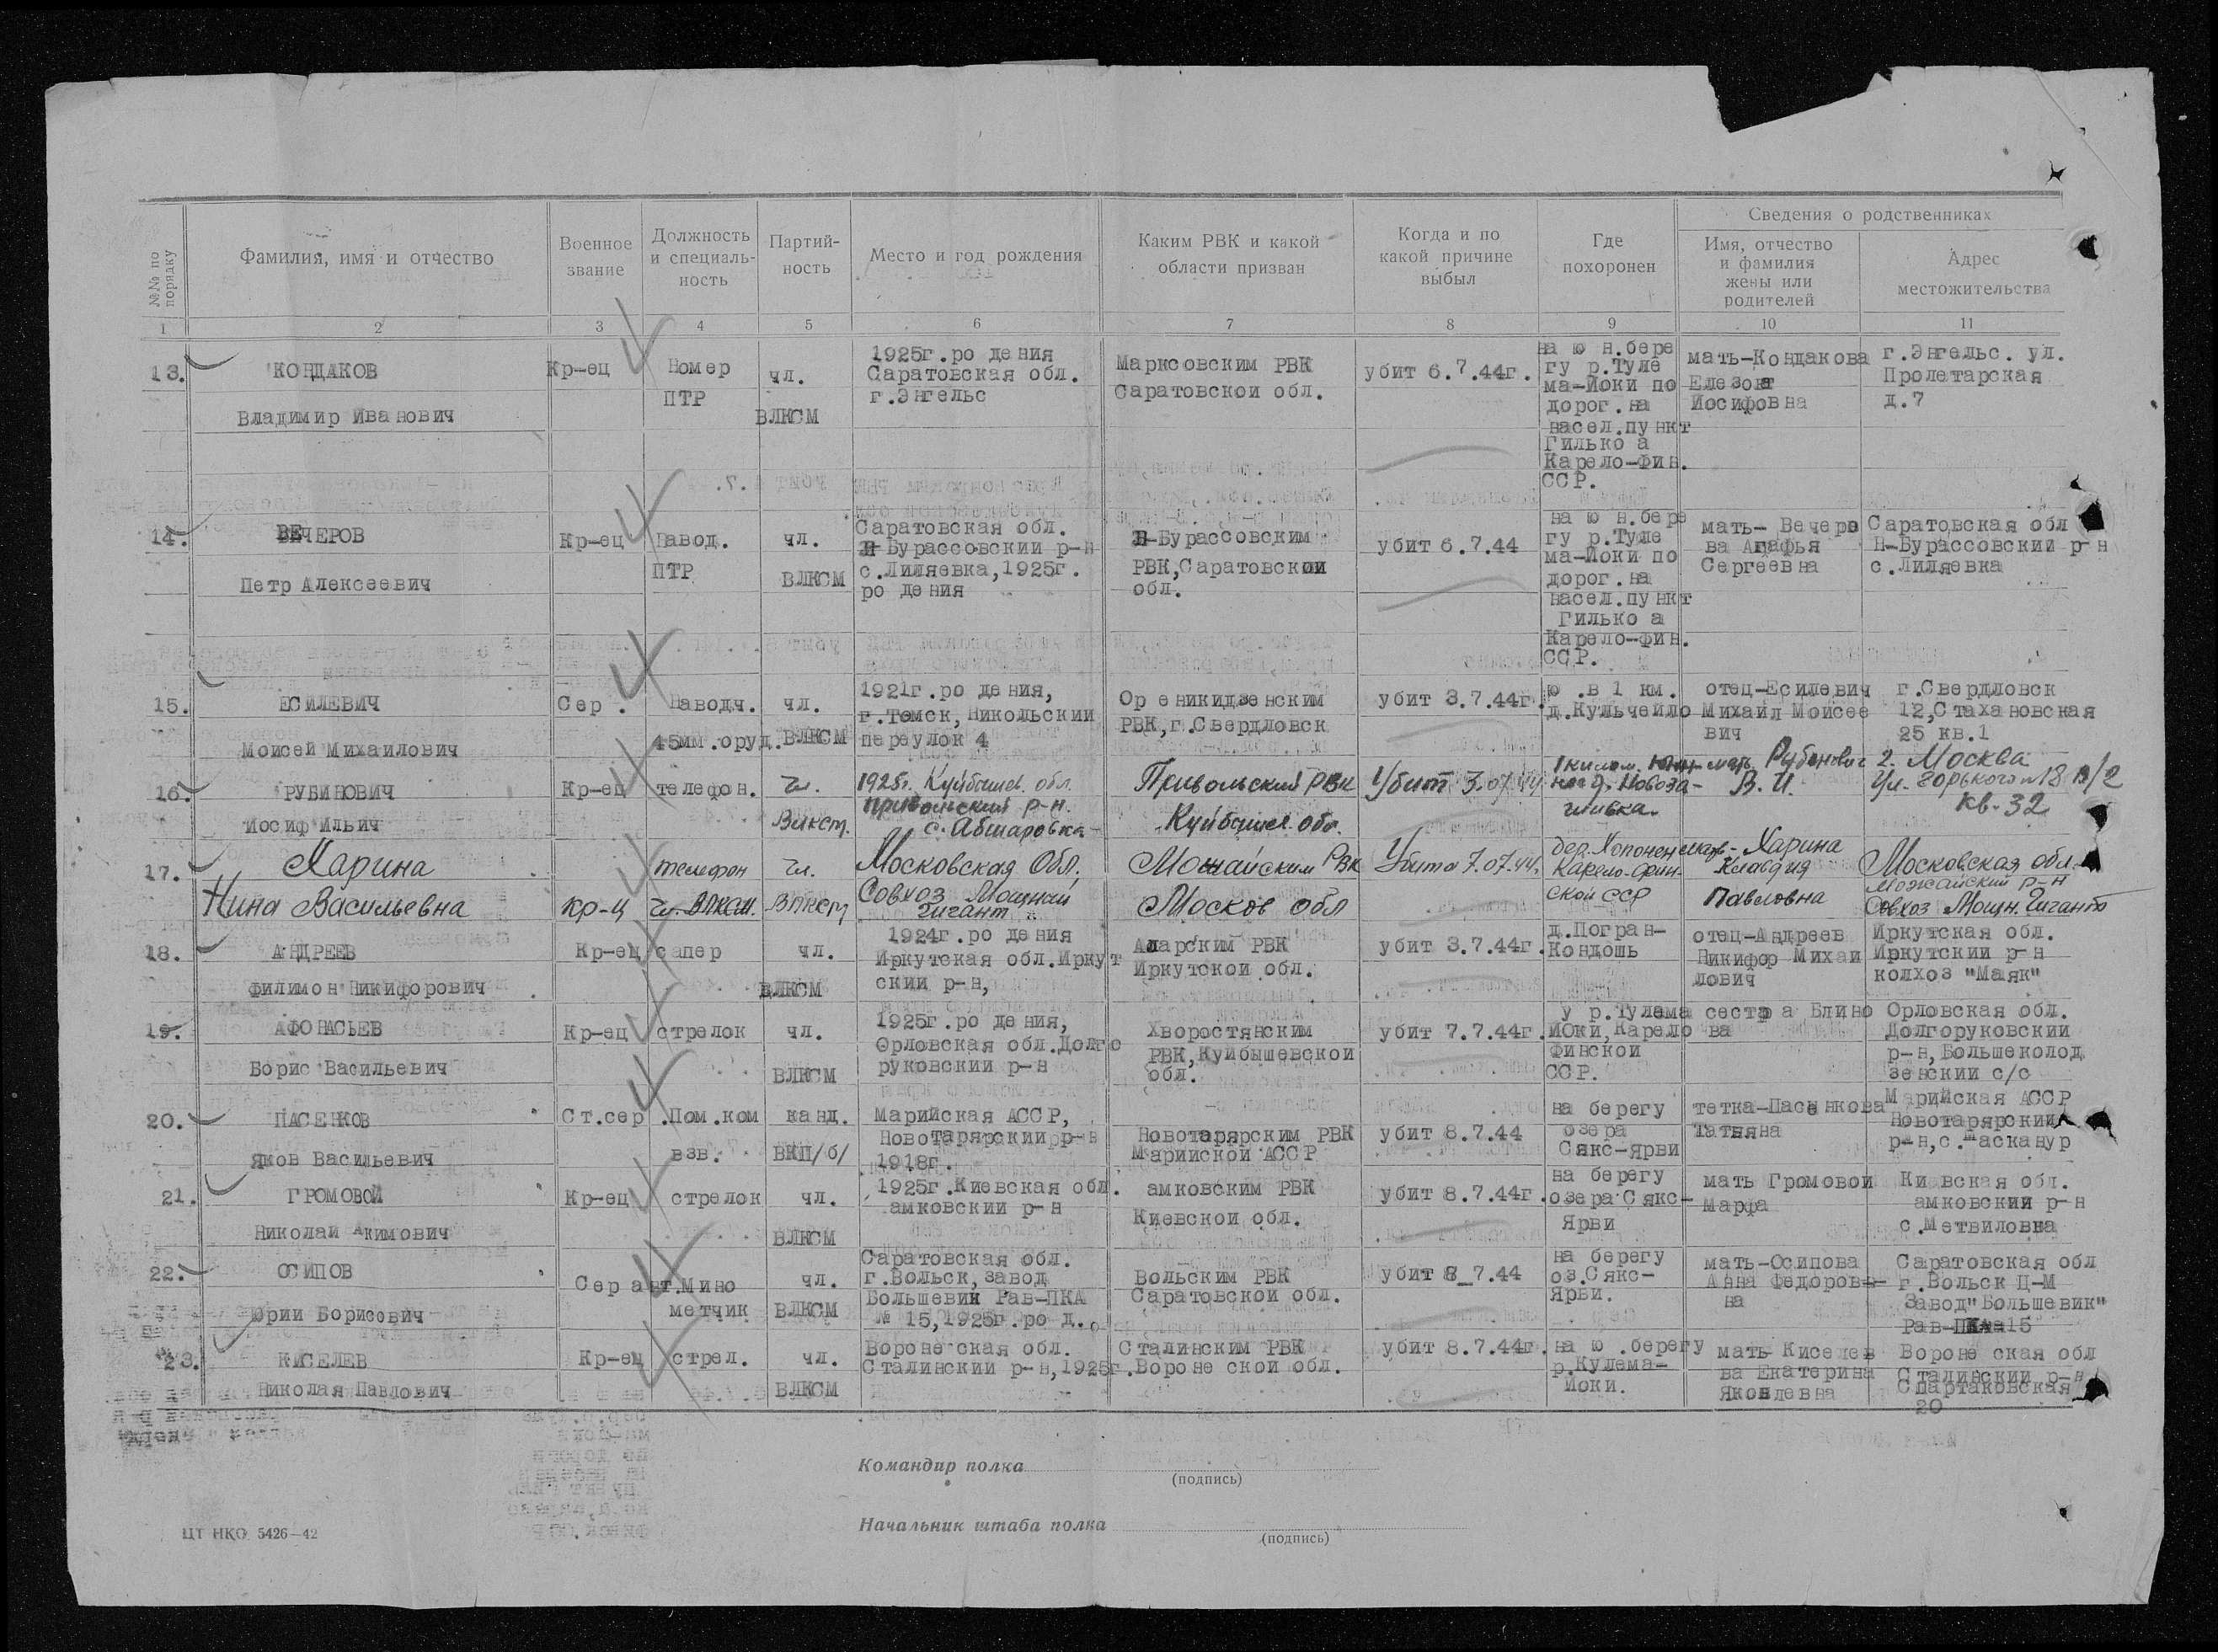 №№ по порядку
Фамилия, имя и отчество
Военное звание
Должность и специальность
Партийность
Место и год рождения
Каким РВК и какой области призван
Когда и по какой причине выбыл
Где похоронен
Сведения о родственниках
Имя, отчество и фамилия жены или родителей
Адрес местожительства
1 2 3 4 5 6 7 8 9 10 11
13. КОНДАКОВ
Владимир Иванович
Кр-ец
Номер
ПТР
чл.
ВЛКСМ
1925г.ро дения
Саратовская обл.
г.Энгельс
Марксовским РВК
Саратовской обл.
убит 6.7.44г.
на ю н.бере
гу р.Туле
ма-Йоки по
дорог.на
насел.пункт
Гилько а
Карело-Фин.
ССР.
мать-Кондакова
Елезовт
Иосифовна
г.Энгельс. ул.
Пролетарская
д.7
14. ВЕЧЕРОВ
Петр Алексеевич
Кр-ец
Навод.
ПТР
чл.
ВЛКСМ
Саратовская обл.
Н-Бурассовский р-н
с.Лиляевка,1925г.
ро дения
Н-Бурассовским
РВК,Саратовской
обл.
убит 6.7.44
на ю н.бере
гу р.Туле
ма-Йоки по
дорог.на
насел.пункт
Гилько а
Карело-Фин.
ССР.
мать- Вечеро
ва Агафья
Сергеевна
Саратовская обл
Н-Бурассовский р-н
с.Лиляевка
15. ЕСИЛЕВИЧ
Моисей Михайлович
Сер .
Наводч.
45мм.оруд.
чл.
ВЛКСМ
1921г.ро дения,
г.Томск,Никольский
переулок 4
Ор еникидзенским
РВК,г.Свердловск
убит 3.7.44г.
ю .в 1 км.
д.Кульчейло
отец-Есилевич
Михаил Моисее
вич
г.Свердловск
12,Стахановская
25 кв.1
16. РУБИНОВИЧ
Иосиф Ильич
Кр-ец
телефон.
Чл.
Влксм.
1925г. Куйбышев. обл.
Привольский р-н.
с. Абшаровка
Привольский РВК
Куйбышев. обл.
Убит 3.07.44
1 килом.
нее д. Новоза-
мать Рубинович
В. И.
г. Москва
Ул. Горького 18
кв. 32
17. Харина
Нина Васильевна
кр-ц
телефон
чл. ВЛКСМ.
Чл.
Влксм
Московская Обл.
Совхоз Мощный
Гигант
Можайским РВК
Москов обл
Убита 7.07.44.
дер. Хопонен
Карело-Фин-
ской ССР
мать- Харина
Клавдия
Павловна
Московская обл.
Можайский р-н
Совхоз Мощн. Гигант
18. АНДРЕЕВ
Филимон Никифорович
Кр-ец
сапер
чл.
ВЛКСМ
1924г.ро дения
Иркутская обл.Иркут
ский р-н,
Аларским РВК
Иркутской обл.
убит 3.7.44г.
д.Погран-
Кондошь
отец-Андреев
Никифор Михаи
лович
Иркутская обл.
Иркутский р-н
колхоз "Маяк"
19. АФОНАСЬЕВ
Борис Васильевич
Кр-ец
стрелок
чл.
ВЛКСМ
1925г.ро дения,
Орловская обл.Долго
руковский р-н
Хворостянским
РВК,Куйбышевской
обл.
убит 7.7.44г.
у р.Тулема
Йоки,Карело
Финской
ССР.
сестра Блино
ва
Орловская обл.
Долгоруковский
р-н,Большеколод
зенский с/с
20. ПАСЕНКОВ
Яков Васильевич
Ст.сер .
Пом.ком
взв.
канд.
ВКП/б/
Марийская АССР,
Новотарярский р-н
1918г.
Новотарярским РВК
Марийской АССР
убит 8.7.44
на берегу
озера
Сякс-Ярви
тетка-Пасенкова
Татьяна
Марийская АССР
Новотарярский
р-н,с.Масканур
21. ГРОМОВОЙ
Николай Акимович
Кр-ец
стрелок
чл.
ВЛКСМ
1925г.Киевская обл.
амковский р-н
амковским РВК
Киевской обл.
убит 8.7.44г.
на берегу
озера Сякс-
Ярви
мать Громовой
Марфа
Киевская обл.
амковский р-н
с.Метвиловка
22. ОСИПОВ
Юрий Борисович
Сер ант.
Мино
метчик
чл.
ВЛКСМ
Саратовская обл.
г.Вольск,завод
Большевик Рав-ПКА
№ 15,1925г.ро д.
Вольским РВК
Саратовской обл.
убит 8_7.44
на берегу
оз.Сякс-
Ярви.
мать-Осипова
Анна Федоров-
на
Саратовская обл
г.Вольск Ц-М
Завод"Большевик"
Рав-ПКА-15
23. КИСЕЛЕВ
Николая Павлович
Кр-ец
стрел.
чл.
ВЛКСМ
Вороне ская обл.
Сталинский р-н,1925г.
Сталинским РВК
Вороне ской обл.
убит 8.7.44г.
на ю .берегу
р.Кулема-
Йоки.
мать Киселев
ва Екатерина
Яковлевна
Вороне ская обл
Сталинский р-н
Спартаковская
20
Командир полка
(подпись)
Начальник штаба полка
(подпись)
ЦТ НКО 5426—42